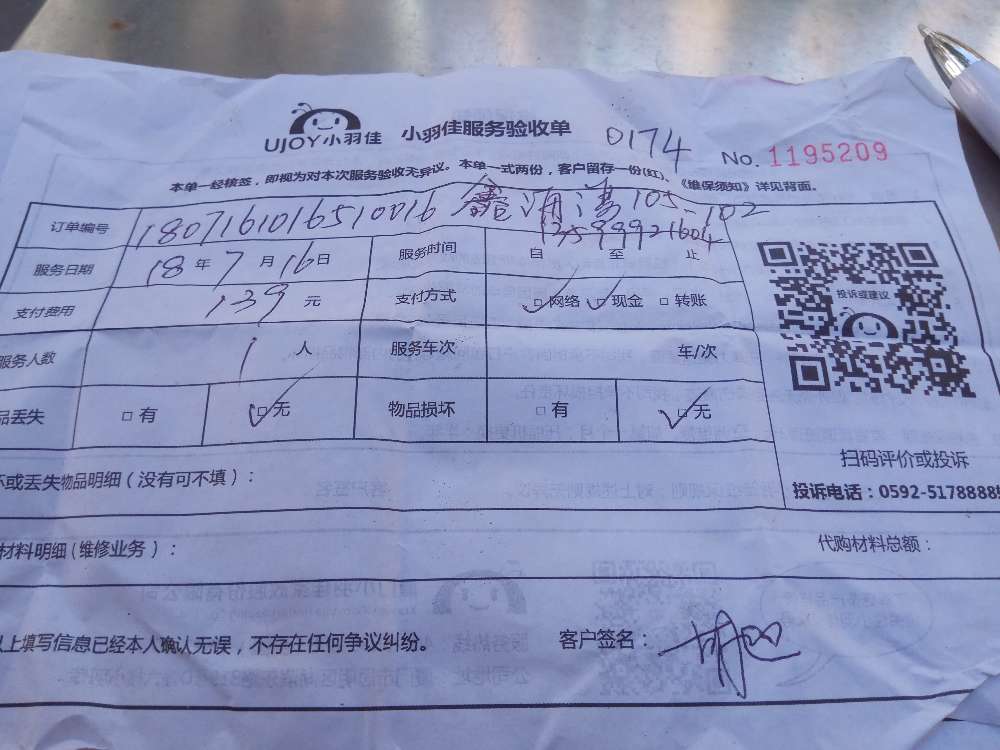 UJOY小羽佳 小羽佳服务验收单 0174 No. 1195209
本单一经核签，即视为对本次服务验收无异议。本单一式两份，客户留存一份(红)、《维保须知》详见背面。
订单编号 1807161016510016 105-102
13599921604
服务日期 18 年 7 月 16 日 服务时间 自 至 止
支付费用 139 元 支付方式 □网络 □现金 □转账
服务人数 1 人 服务车次 车/次
品丢失 □有 □无 物品损坏 □有 □无
投诉或建议
扫码评价或投诉
坏或丢失物品明细（没有可不填）：
投诉电话：0592-5178888
材料明细(维修业务)： 代购材料总额：
以上填写信息已经本人确认无误，不存在任何争议纠纷。 客户签名：